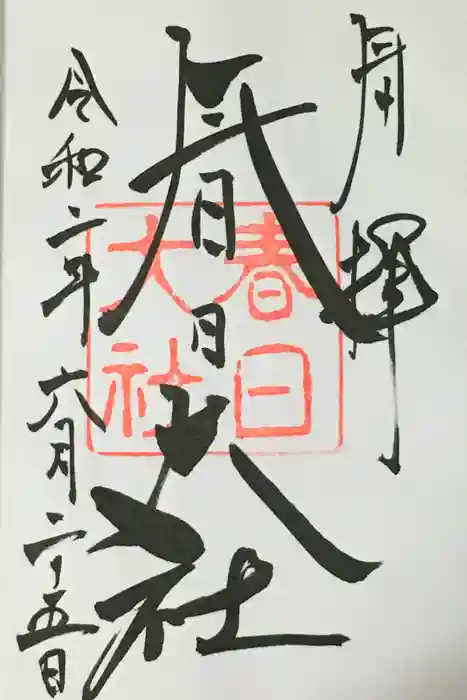 奉拝
春日大社
令和二年六月二十五日
春日
大社